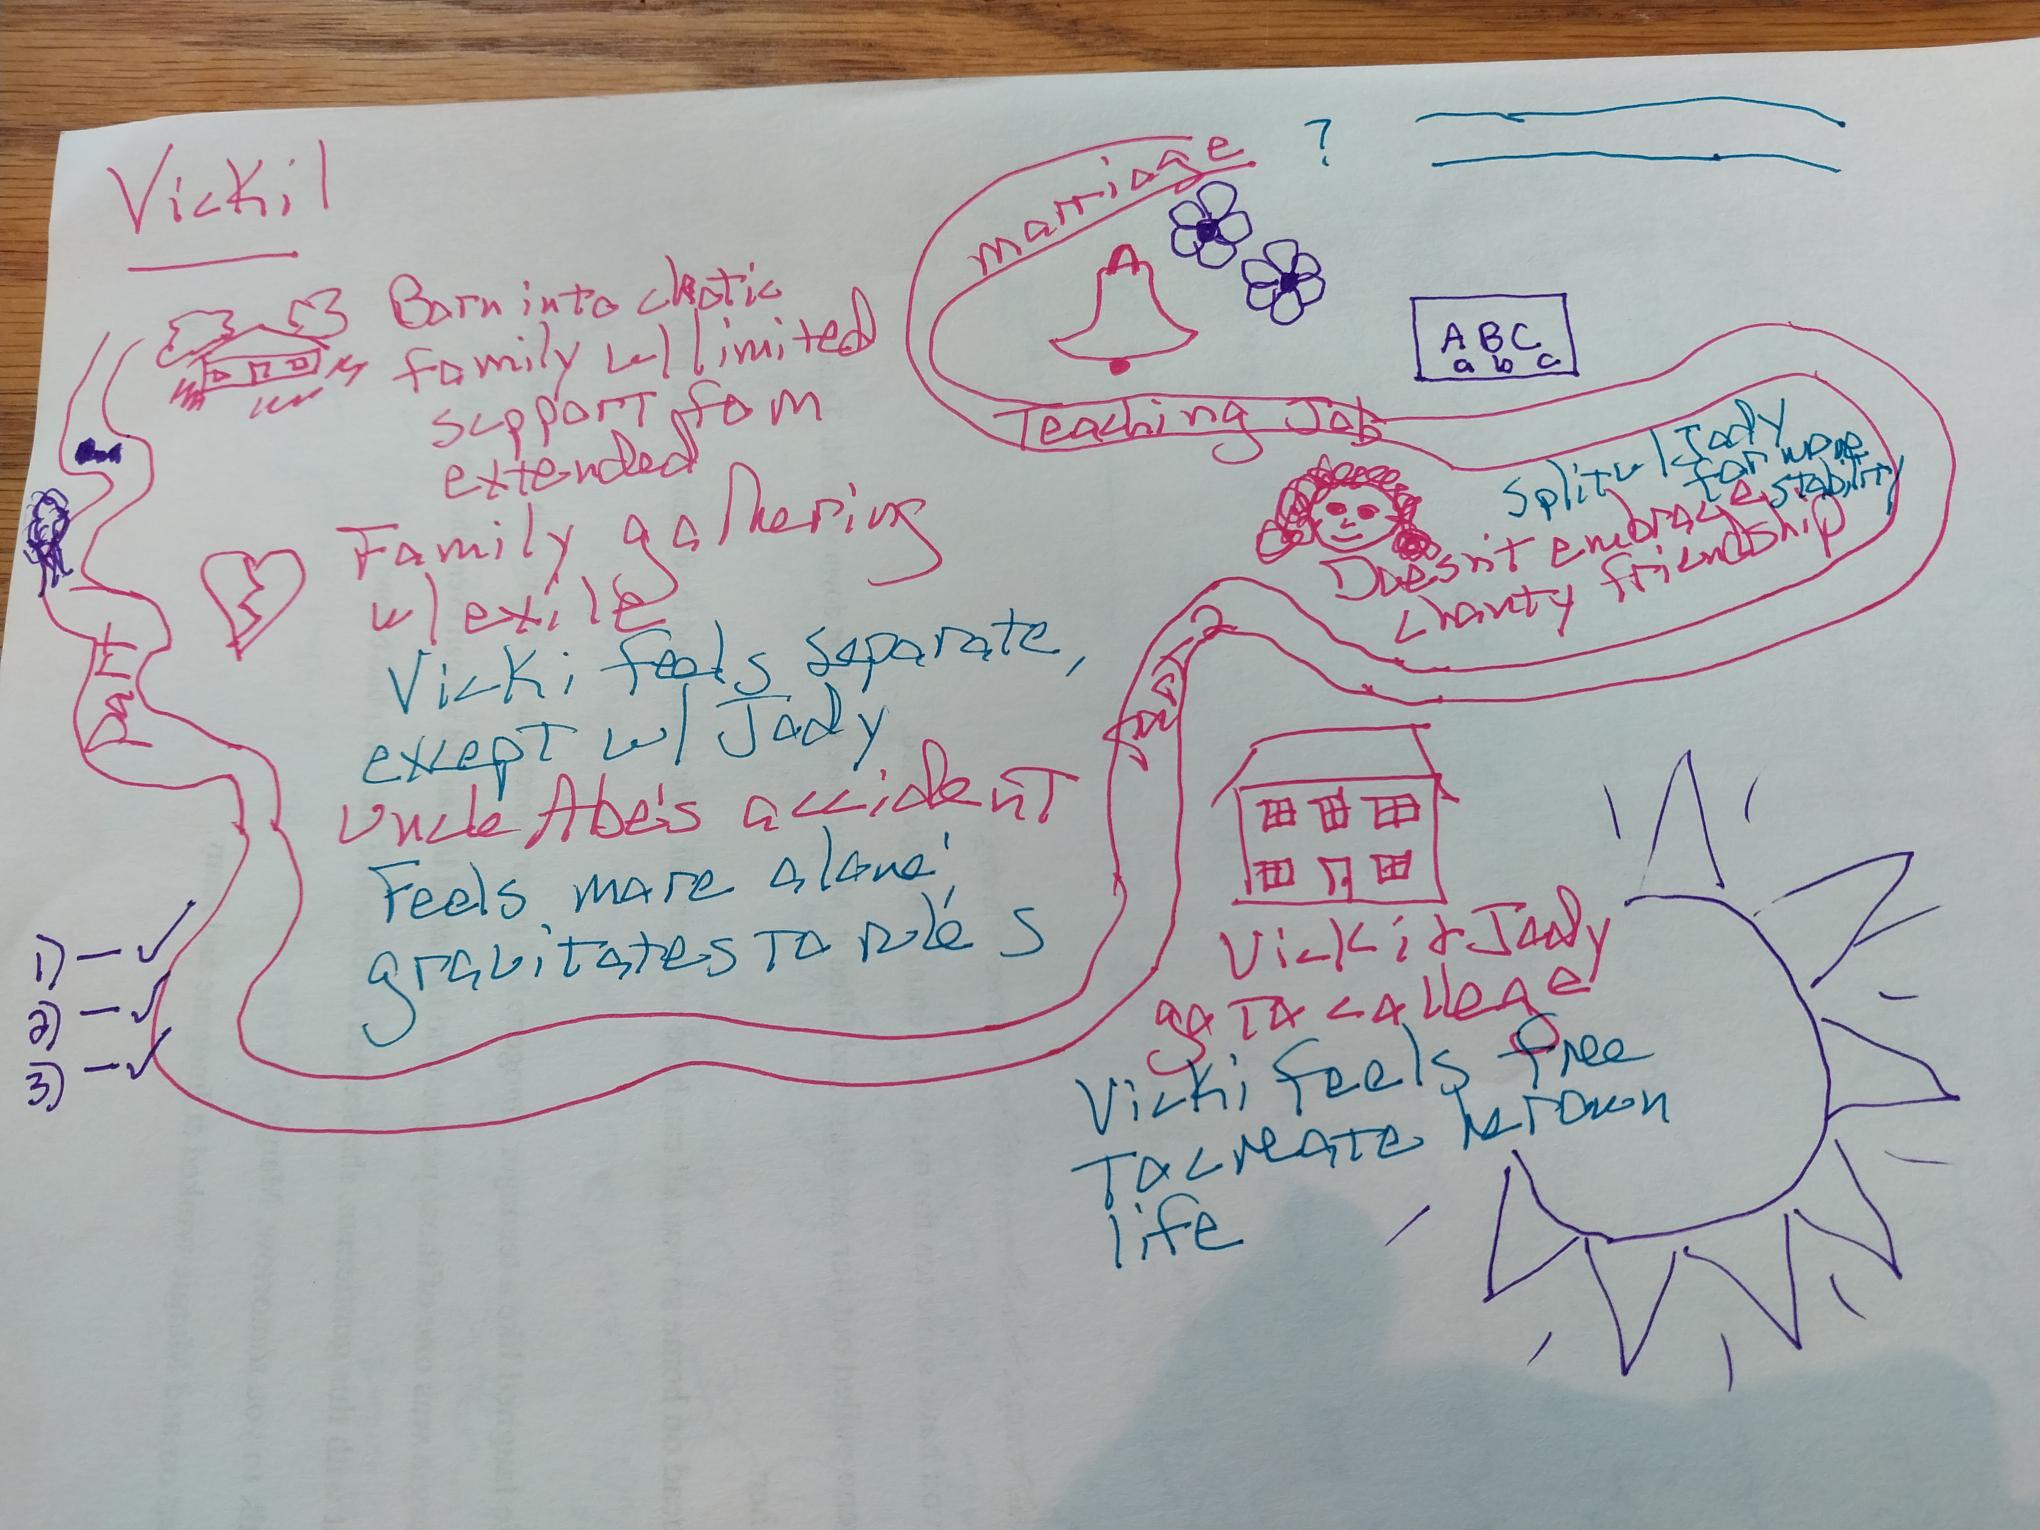 Vicki
Born into chotic
family w/ limited
support fom
extended
Family gathering
w/ exile
Vicki feels separate,
except w/ Jody
Uncle Abe's accident
Feels more alone;
gravitates to rules
1) - ✓
2) - ✓
3) - ✓
marriage
?
A B C
a b c
Teaching Job
Split w/ Jody
for more
stability
Doesn't embrace
charity friendship
Vicki & Jody
go to college
Vicki feels free
to create her own
life